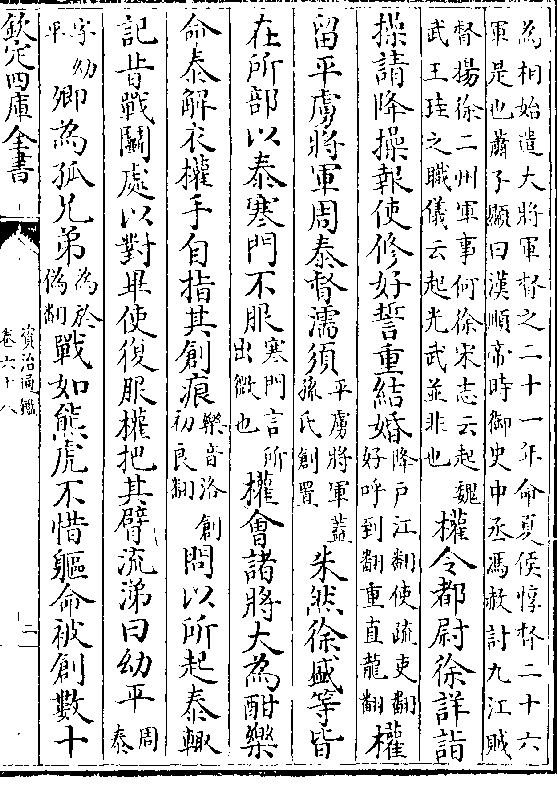 為相始遣大將軍督之二十一年命夏侯惇督二十六
軍是也蕭子顯曰漢順帝時御史中丞馮赦討九江賊
督揚徐二州軍事何徐宋志云起魏
武王珪之職儀云起光武並非也
權令都尉徐詳詣
操請降操報使修好誓重結婚
降戸江翻使疏吏翻
好呼到翻重直龍翻
權
留平虜將軍周泰督濡須
平虜將軍蓋
孫氏創置
朱然徐盛等皆
在所部以泰寒門不服
寒門言所
出微也
權會諸將大為酣樂
命泰解衣權手自指其創痕
樂音洛創
初良翻
問以所起泰輙
記昔戰鬭處以對畢使復服權把其臂流涕曰幼平
周
泰
字幼
平
卿為孤兄弟
為於
偽翻
戰如熊虎不惜軀命被創數十
欽定四庫全書
資治通鑑
卷六十八
二